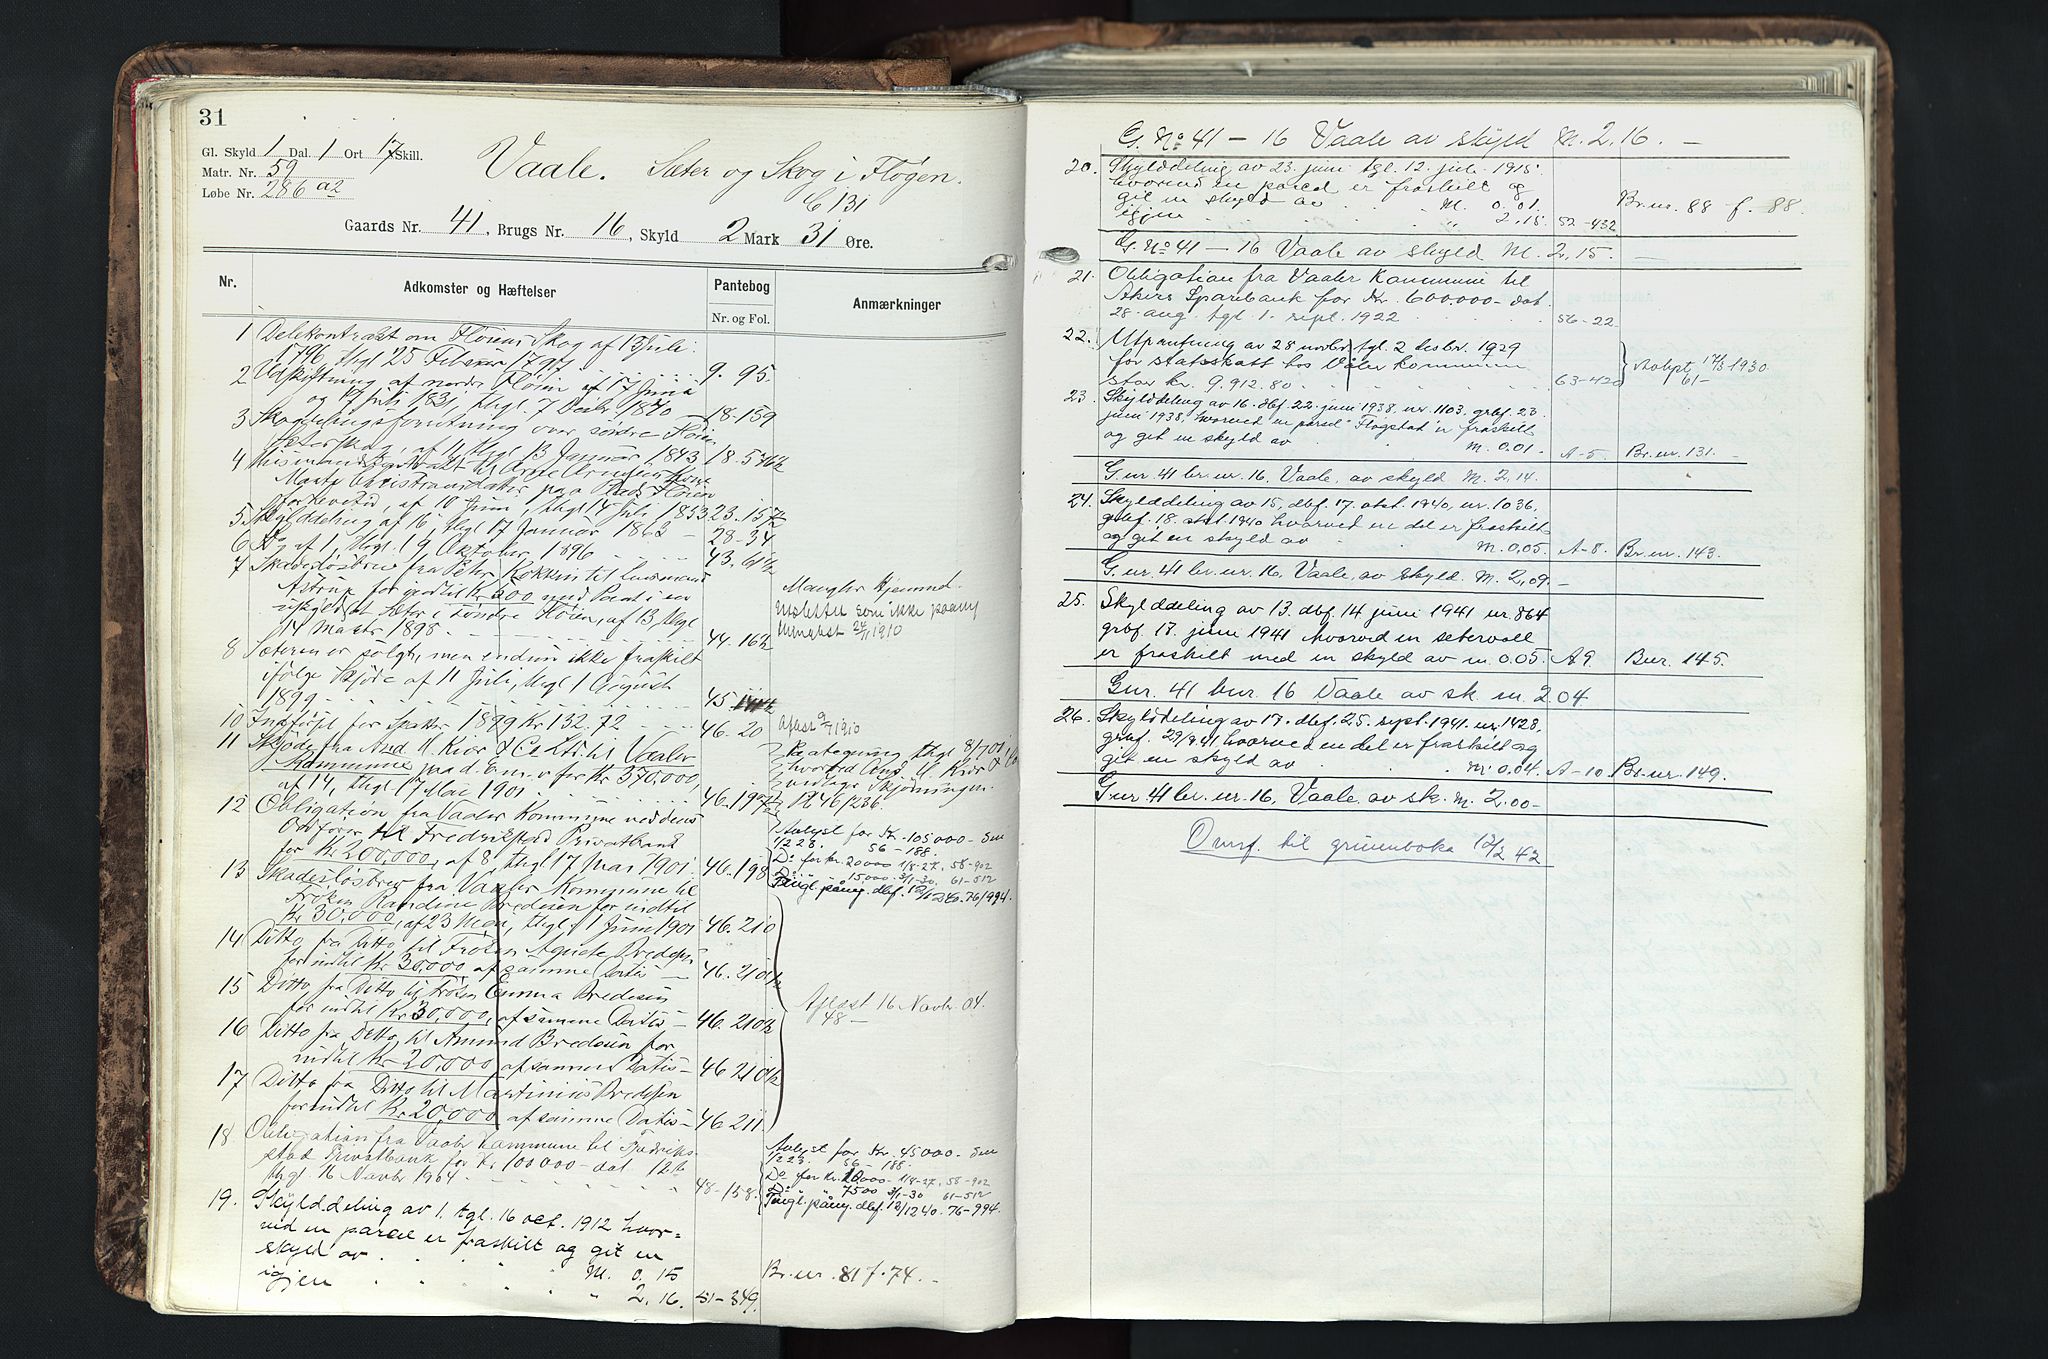 31
Gl. Skyld 1 Dal. 1 Ort 17 Skill.
Matr. Nr. 59
Løbe Nr. 286 a2
Vaale. Sæter og Skog i Fløgen.
C 131
Gaards Nr. 41, Brugs Nr. 16, Skyld 2 Mark 31 Øre.
Nr. Adkomster og Hæftelser Pantebog Nr. og Fol. Anmærkninger
1 Delekontrakt om Fløiens Skog af 13 Juli
1796, thgl 25 Februar 1797 9. 95.
2 Udskiftning af nordre Fløien af 17 Juni
og 17 Juli 1831, thgl. 7 Decbr 1840 18-159
3 Skogdelingsforretning over søndre Fløien
Sæterskog, af 11 thgl 13 Januar 1843 18. 536½
4 Husmandskontrakt til Arne Arnesen, Kone
Marte Christiansdatter paa Plads Fløien
for Levetid, af 10 Juni, thgl 14 Juli 1853 23. 157½
5 Skylddeling af 16, thgl 17 Januar 1863 - 28-34
6 Do af 1, thgl. 19 Oktober 1896 43. 61½
7 Skadesløsbrev fra Peter Kokkin til Lensmand
Astrup for indtil Kr 200 med Pant i en
uskyldsat Sæter i søndre Fløien, af 13, thgl
14 Marts 1898 44. 162
Mangler Hjemmel.
Udslettet som ikke paany
thinglæst 24/1 1910
8 Sæteren er solgt, men endnu ikke fraskilt
ifølge Skjøde af 11 Juli, thgl 1 August
1899 45
10 Indførsel for Skatter 1899 Kr 132.72 46. 20 Aflæst 9/7 1910
11 Skjøde fra And. H. Kiær & Co Ltd. til Vaaler
Kommune paa d. E. m. v. for Kr 370,000,
af 14, thgl 17 Mai 1901 46. 197½
Paategning thgl 8/7 01,
hvorved And. H. Kiær & Co
vedtage Skjødningen.
P.B 46/236.
12 Obligation fra Vaaler Kommune ved dens
Ordfører til Fredrikstad Privatbank
for Kr 200,000, af 8, thgl 17 Mai 1901 46. 198
Avlyst for Kr. 105000.- den
1/2 28. 56-188.
Do for kr. 20000 1/8-27, 58-902
Do " 15000. 3/1-30. 61-512
Tingl. påny. dbf. 12/12 40. 76/994.
13 Skadesløsbrev fra Vaaler Kommune til
Frøken Randine Bredesen for indtil
Kr 30,000, af 23 Mai, thgl. 1 Juni 1901 46. 210
14 Ditto fra Ditto til Frøken Agnete Bredesen
for indtil Kr 30,000 af samme Datis - 46. 210½
15 Ditto fra Ditto til Frøken Emma Bredesen
for indtil Kr 30,000, af samme Datis - 46. 210½
Aflæst 16 Novbr. 04.
48 -
16 Ditto fra Ditto til Amund Bredesen for
indtil Kr 20,000 af samme Datis - 46. 210½
17 Ditto fra Ditto til Martinius Bredesen
for indtil Kr 20,000 af samme Datis - 46. 211.
18 Obligation fra Vaaler Kommune til Fredrik-
stad Privatbank for Kr 100000 - dat. 12te
thgl. 16 Novbr 1904 48-158.
Avlyst for Kr. 45000.- den
1/2 28. 56-188.
Do for kr. 10000- 1/8-27, 58-902
Do " 7500 3/1-30 61-512
Tingl. påny. dbf. 12/12 40. 76-994.
19. Skylddeling av 1. tgl. 16 oct. 1912 hvor-
ved en parcel er fraskilt og git en
skyld av M. 0.15
igjen " 2.16. 51-349. Br.nr. 81 f. 74.-
G. No 41 - 16 Vaale av skyld M. 2.16. -
20. Skylddeling av 23. juni tgl. 12. juli 1915.
hvorved en parcel er fraskilt og
git en skyld av M. 0.01.
igjen " 2.15. 52-432 Br.nr. 88 f. 88.
G. No 41 - 16 Vaale av skyld M. 2.15. -
21. Obligation fra Vaaler Kommune til
Akers Sparebank for Kr. 600000- dat.
28. aug. tgl. 1. sept. 1922 56-22.
22. Utpantning av 28 novbr. tgl. 2 desbr. 1929
for statsskatt hos Våler kommune
stor kr. 9.912.80. 63-420 Avlyst 17/3 1930
61-
23. Skylddeling av 16. dbf. 22. juni 1938. nr. 1103. grbf. 23.
juni 1938, hvorved en parsel "Flogstad" er fraskilt
og get en skyld av M. 0.01. A-5. Br.nr. 131. -
G.nr. 41 br.nr. 16. Vaale, av skyld M. 2.14.
24. Skylddeling av 15, dbf. 17. okt. 1940, nr. 1036,
grbf. 18. okt. 1940 hvorved en del er fraskilt
og get en skyld av M. 0.05. A-8. Br.nr. 143.
G.nr. 41 br.nr. 16. Vaale, av skyld. M. 2,09.-
25. Skylddeling av 13. dbf. 14 juni 1941 nr. 864
grbf. 17. juni 1941 hvorved en setervoll
er fraskilt med en skyld av m. 0.05. A9. Bnr. 145.
Gnr. 41 bnr. 16 Vaale av sk. m. 2 04
26. Skylddeling av 17. dbf. 25. sept. 1941. nr. 1428,
grbf. 29/9.41 hvorved en del er fraskilt og
get en skyld av M. 0.04. A-10 Br.nr. 149.
G.nr. 41 br.nr. 16, Vaale, av sk. M. 2.00-
Overf. til grunnboka 12/2 42